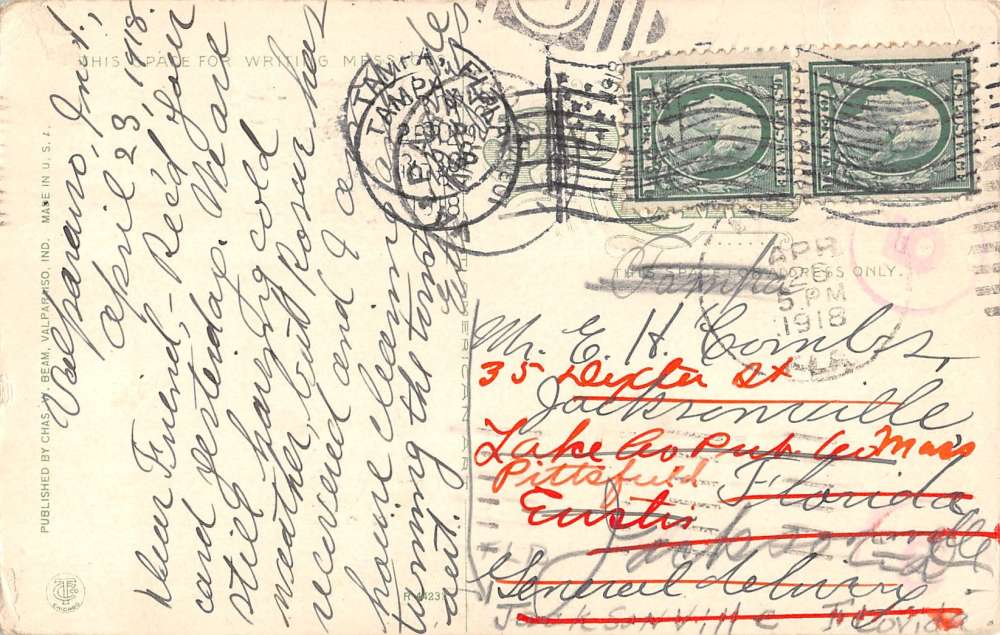 THIS SPACE FOR WRITING MESSAGES
Valparaiso, Ind.,
April 23, 1918.
Dear Friend,- Rec'd your
card yesterday. We are
still having cold
weather, but Rosie has
recovered and I am
house cleaning and
turning the things
out.
PUBLISHED BY CHAS. W. BEAM, VALPARAISO, IND. MADE IN U. S. A.
R-4423
TAMPA FLA
1918
U.S. POSTAGE
U.S. POSTAGE
THIS SPACE FOR ADDRESS ONLY.
Tampa
APR
26
5 PM
1918
FLA
Mr. E. H. Combs,
35 Dexter St
Jacksonville
Lake Co Pub. Co Mass
Pittsfield
Florida
Eustis
Jacksonville
General delivery
JACKSONVILLE Florida